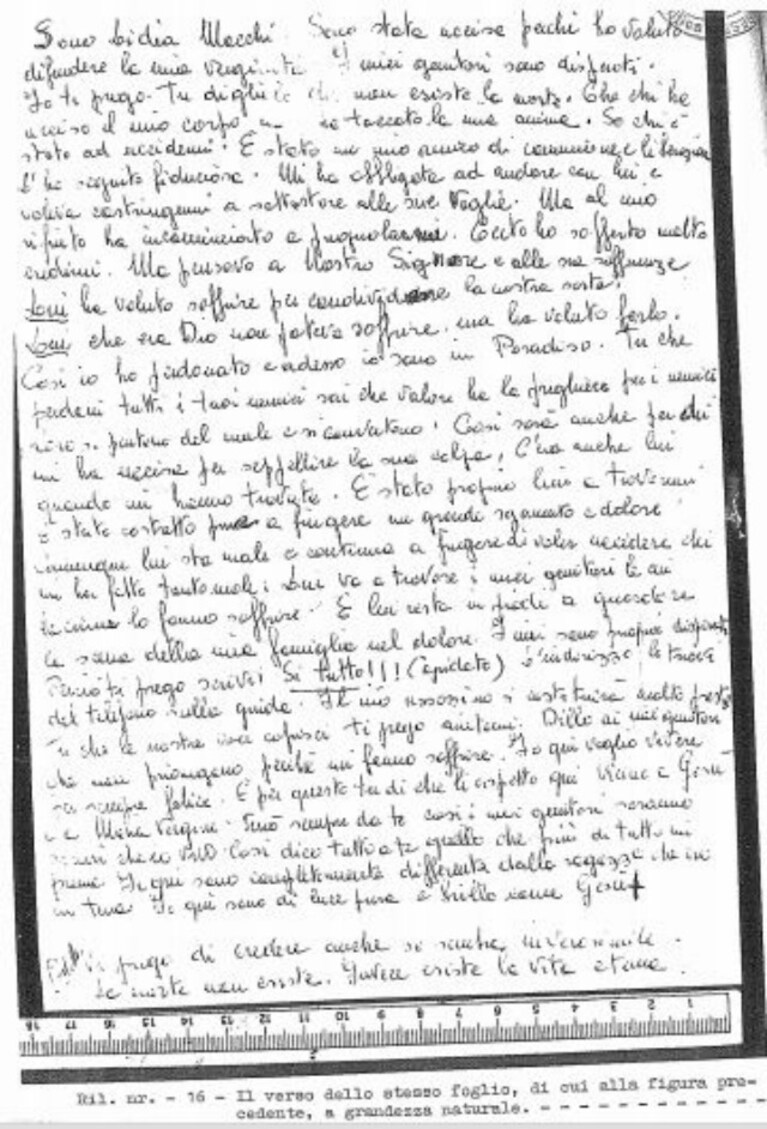 Sono Lidia Macchi. Sono stata uccisa perché ho voluto
difendere la mia verginità. I miei genitori sono disperati.
Io ti prego. Tu di che non esiste la morte. Che chi ha
ucciso il mio corpo toccato la mia anima. So chi è
stato ad uccidermi. È stato un mio amico di comunione e liberazione
L'ho seguito fiduciosa. Mi ha obbligata ad andare con lui e
voleva costringermi a sottostare alle sue voglie. Ma al mio
rifiuto ha incominciato a pugnalarmi. Certo ho sofferto molto
credimi. Ma pensavo a Nostro Signore e alle sue sofferenze
Lui ha voluto soffrire per condividere la nostra sorte.
Lui che era Dio non poteva soffrire. ma ha voluto farlo.
Così io ho perdonato e adesso io sono in Paradiso. Tu che
perdoni tutti i tuoi nemici sai che valore ha la preghiera per i nemici
si pentono del male e si convertono! Così sarà anche per chi
mi ha uccisa per seppellire la sua colpa, C'era anche lui
quando mi hanno trovata. È stato proprio lui a trovarmi
è stato costretto a fingere un grande sgomento e dolore
comunque lui sta male e continua a fingere di voler uccidere chi
mi ha fatto tanto male; Lui va a trovare i miei genitori le cui
lacrime lo fanno soffrire. E lui resta in piedi a guardare
la scena della mia famiglia nel dolore. I miei sono proprio disperati
Perciò ti prego scrivi! Si tutto!!! (Capidato) e l'indirizzo le trovi
del telefono sulla guida. Il mio assassino si costituirà molto presto
Tu che le nostre voci capisci ti prego aiutami. Dillo ai miei genitori
che non piangano perché mi fanno soffrire. Io qui voglio vivere
sempre felice. E per questo tu di che li aspetto qui vicino a Gesù
e a Maria Vergine. sempre da te così i miei genitori saranno
Così dico tutto a te quello che più di tutto mi
preme Io qui sono completamente differente dalla ragazza che ero
in terra. Io qui sono di luce pura e brillo come Gesù
Vi prego di credere anche se sembra inverosimile.
La morte non esiste. Invece esiste la vita eterna.
18 17 16 15 14 13 12 11 10 9 8 7 6 5 4 3 2 1
Ril. nr. - 16 - Il verso dello stesso foglio, di cui alla figura pre-
cedente, a grandezza naturale. - - - - - - - - - - -